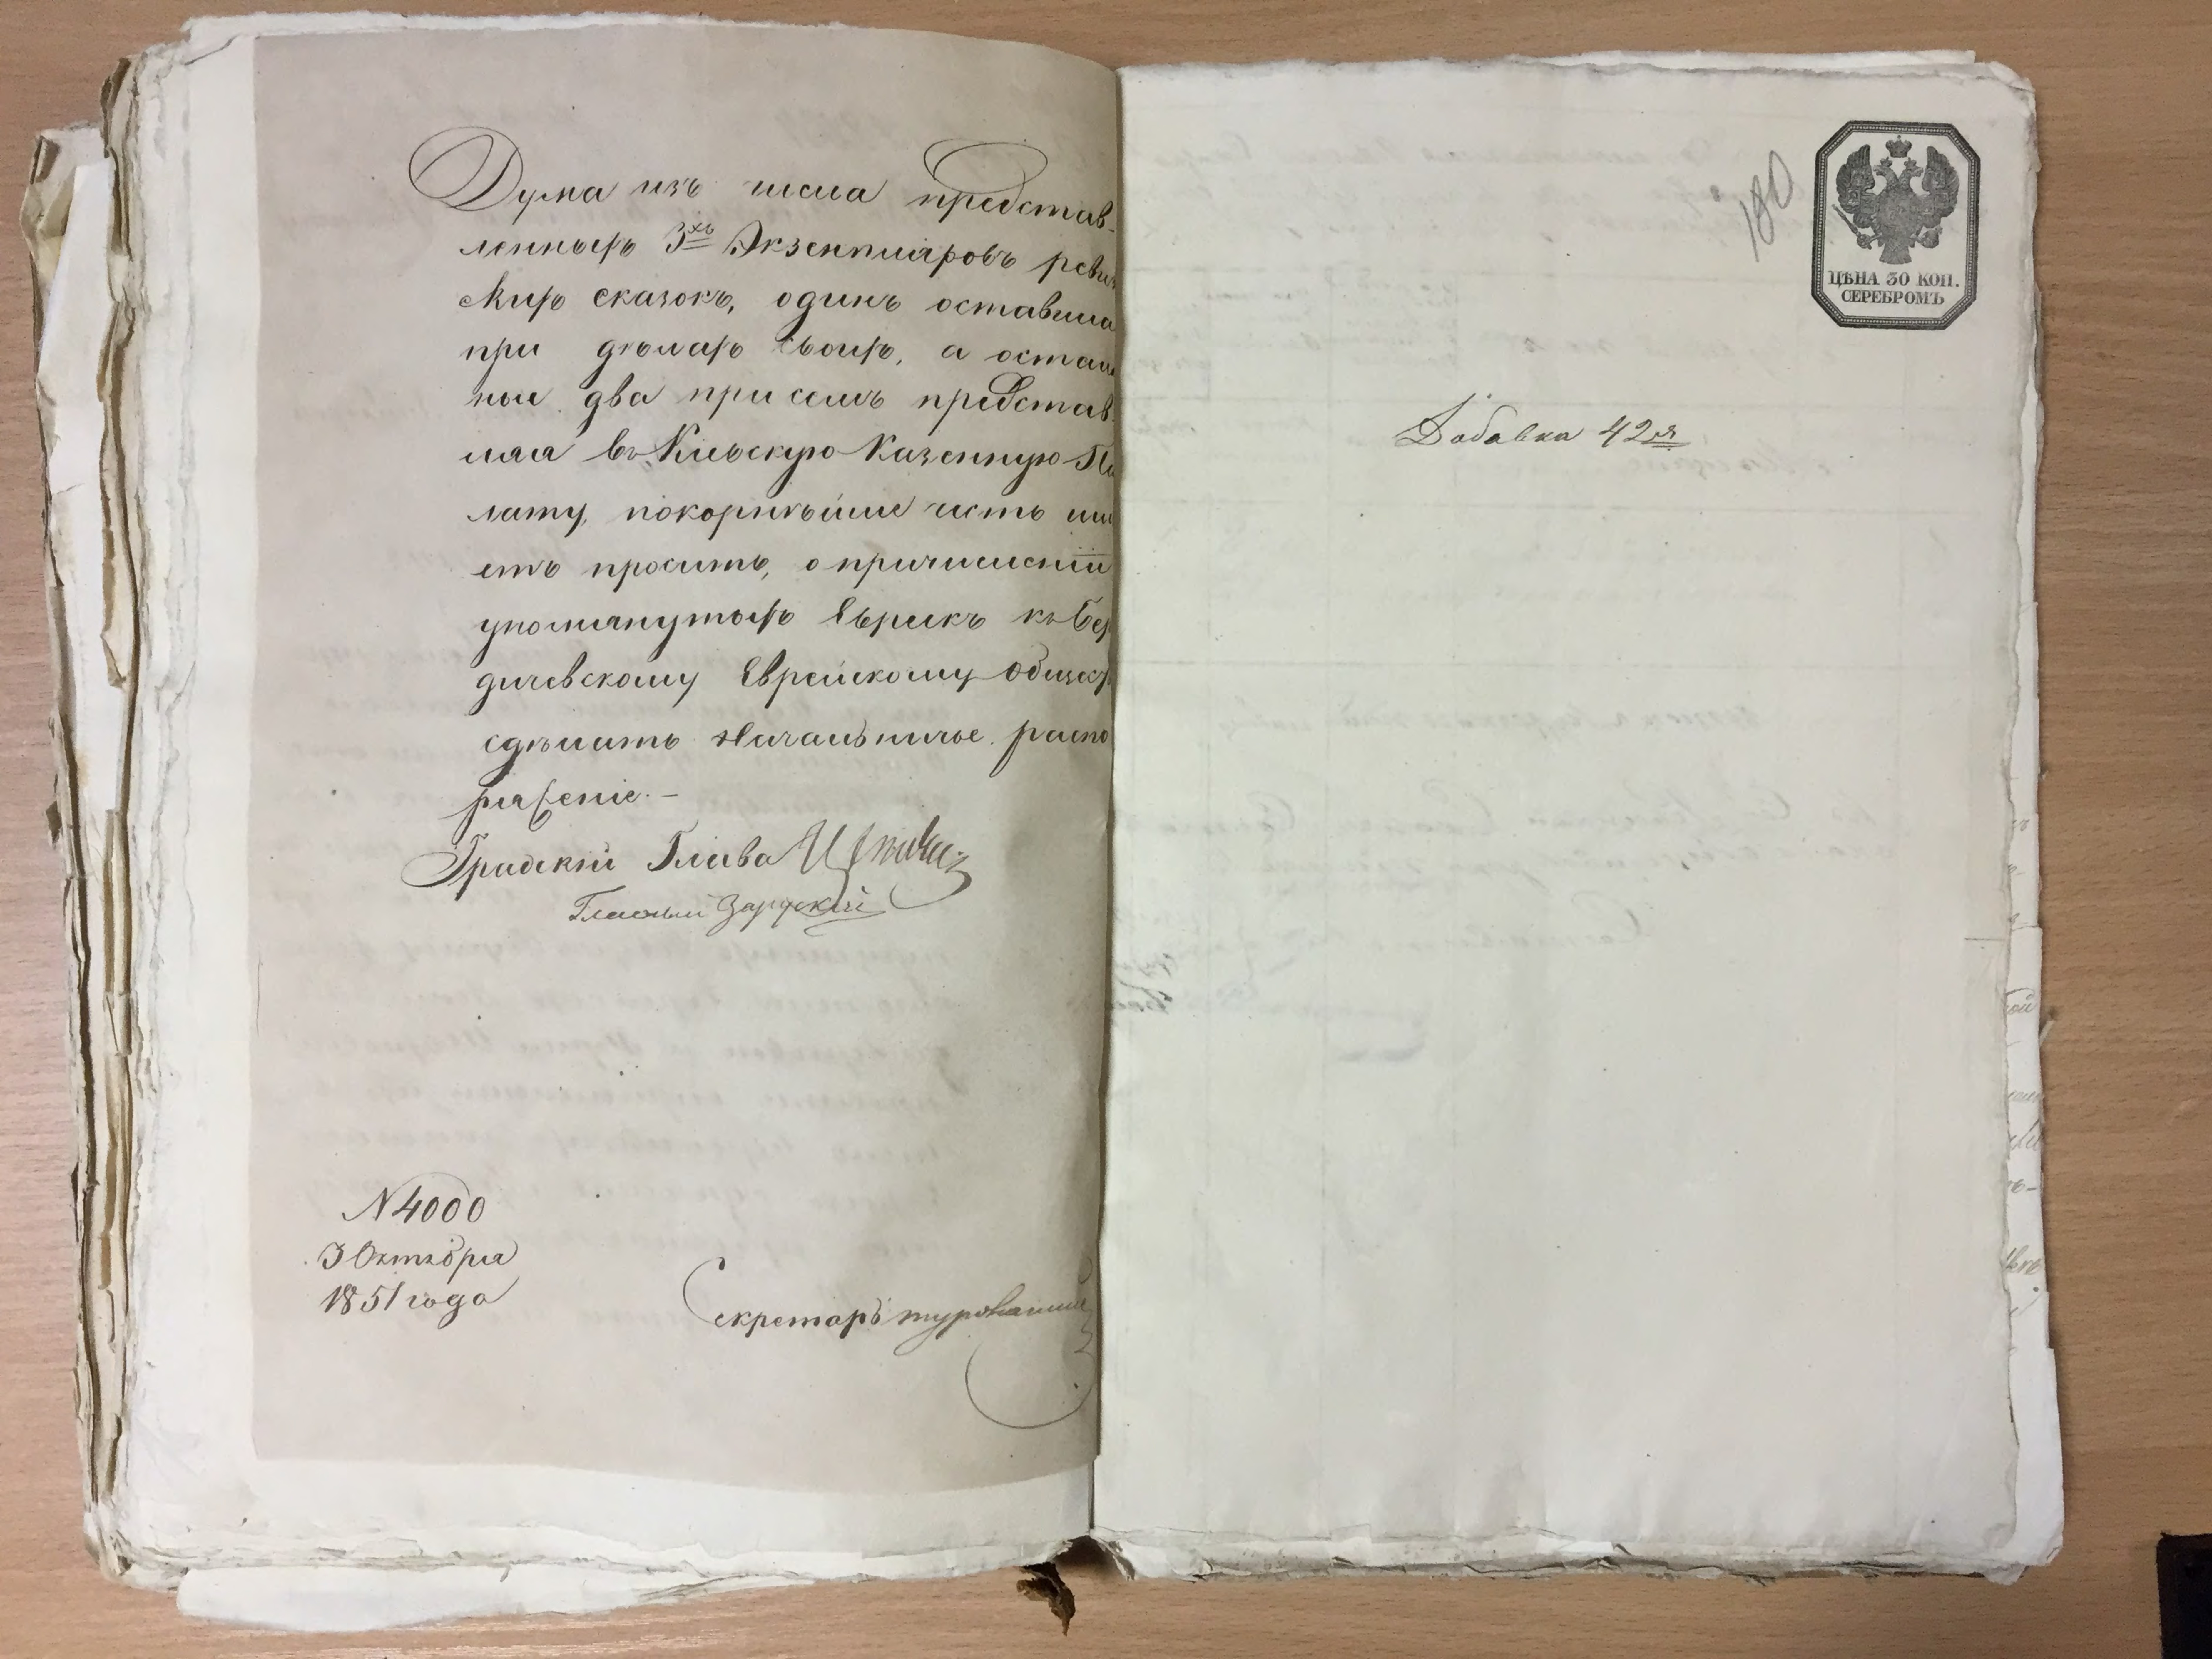 Дума изъ числа представ-
ленныхъ 3хъ Экземпляровъ реви
скихъ сказокъ, одинъ оставила
при дѣлахъ своихъ, а осталь
ные два при семъ представ
ляя въ Кіевскую Казенную Па
лату, покорнѣйше честь имѣ
етъ просить, о причисленіи
упомянутыхъ Евреевъ къ Бер
дичевскому Еврейскому обществу
сдѣлать Начальничье распо
ряженіе.—
Градскій Глава
Гласный Заруцкій
N 4000
3 Октября
1851 года
Секретарь
180
ЦѢНА 30 КОП.
СЕРЕБРОМЪ
Добавка 42я